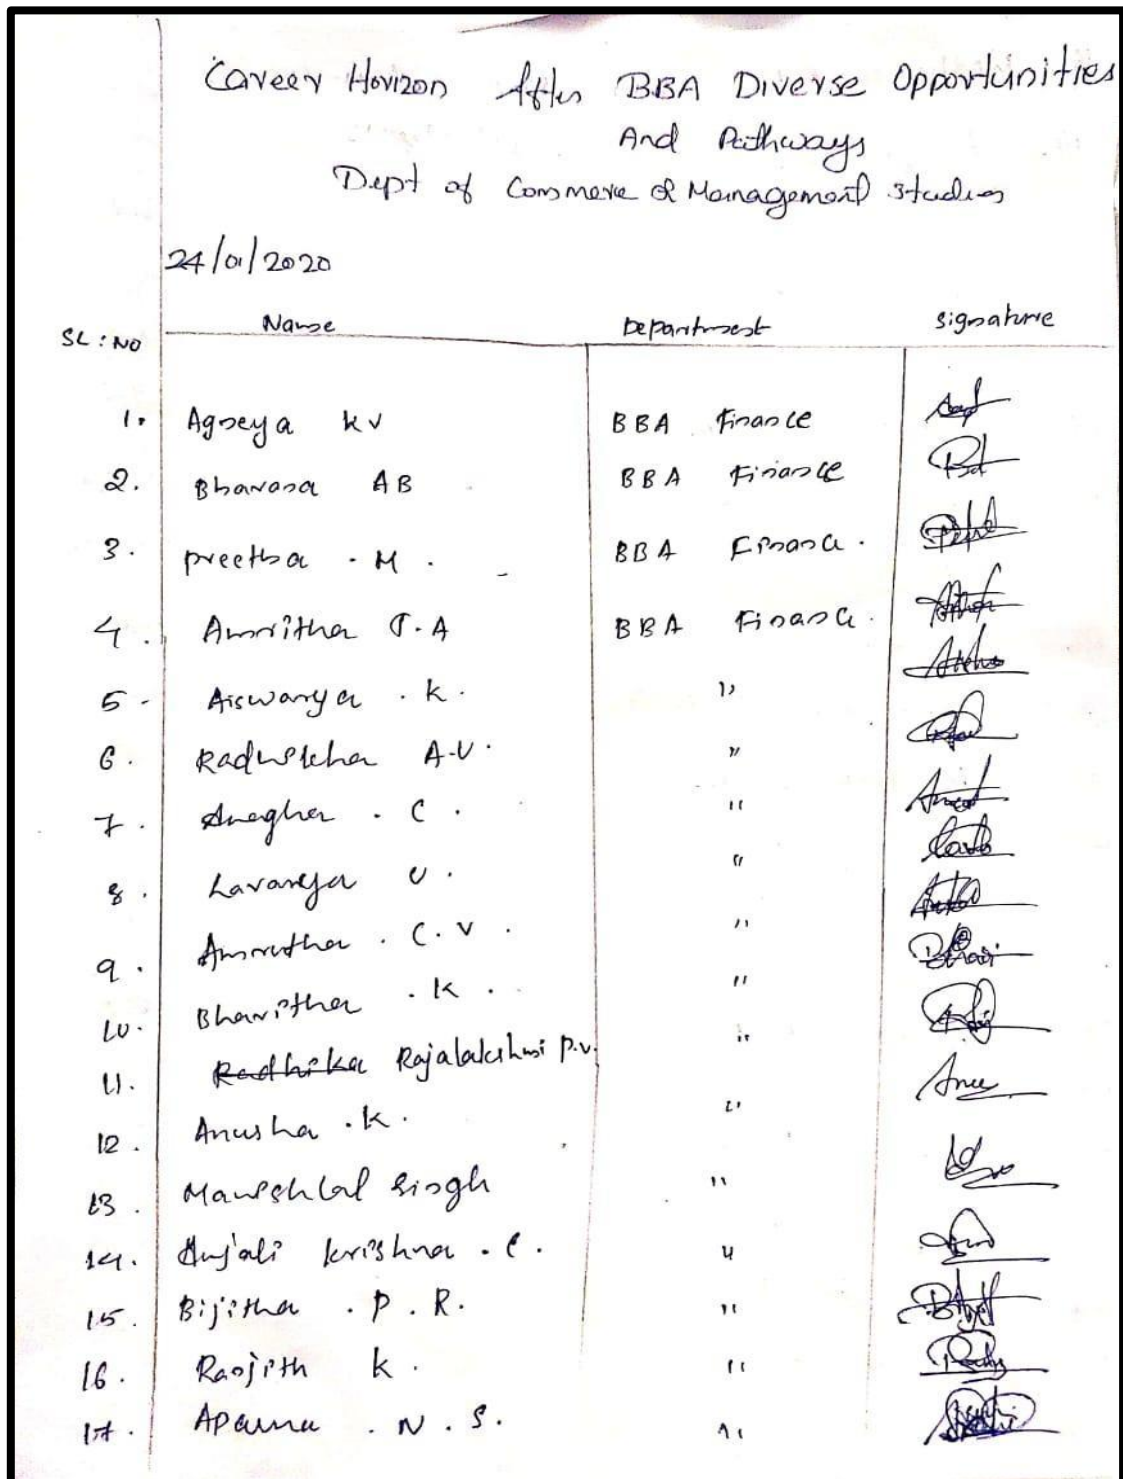 Career Horizon After BBA Diverse Opportunities
And Pathways
Dept of Commerce & Management Studies
24/01/2020
SL: NO Name Department Signature
1. Agneya KV BBA Finance
2. Bhavana AB BBA Finance
3. Preetha . M . BBA Finance .
4. Amritha T.A BBA Finance .
5 - Aiswarya . K . "
6 . A.V. "
7 . Anagha . C . "
8 . Lavanya U . "
9 . Amrutha . C . V . "
10. Bhavitha . K . "
11. Radhika Rajalakshmi P.V. "
12 . Anusha . K . "
13 . Singh "
14. Anjali Krishna . C . "
15 . Bijitha . P . R . "
16 . Ranjith K . "
17 . Aparna . N . S . "